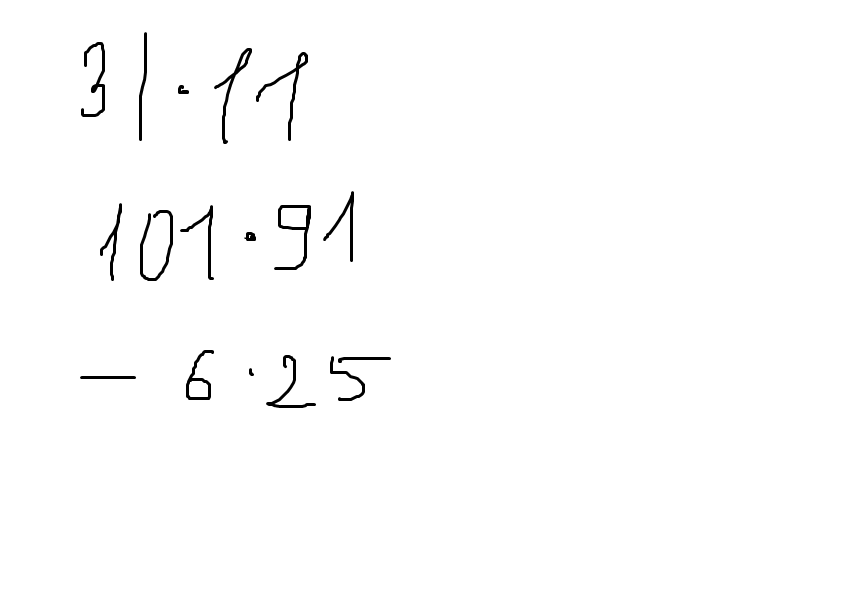 31·11
101·91
- 6·25